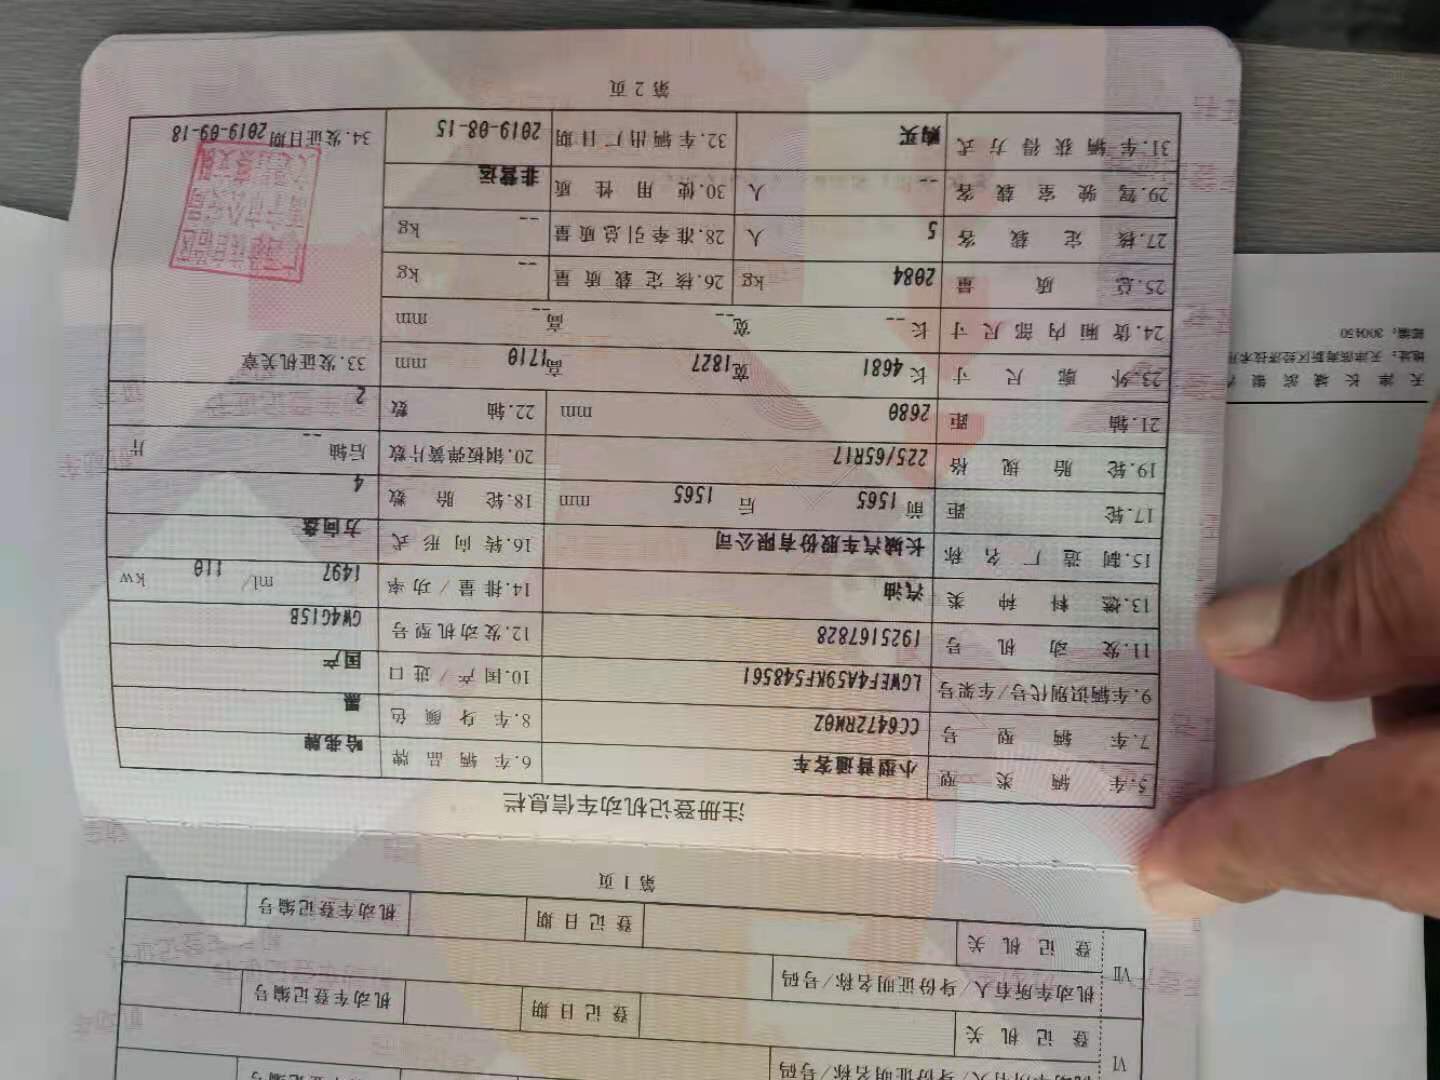 VI
机动车所有人/身份证明名称/号码
登记机关
登记日期
机动车登记编号
VII
机动车所有人/身份证明名称/号码
登记机关
登记日期
机动车登记编号
第1页
注册登记机动车信息栏
5.车辆类型 小型普通客车 6.车辆品牌 哈弗牌
7.车辆型号 CC6472RM0Z 8.车身颜色 黑
9.车辆识别代号/车架号 LGWEF4A59KF548561 10.国产/进口 国产
11.发动机号 1925167828 12.发动机型号 GW4G15B
13.燃料种类 汽油 14.排量/功率 1497 ml/ 110 kw
15.制造厂名称 长城汽车股份有限公司 16.转向形式 方向盘
17.轮距 前 1565 后 1565 mm 18.轮胎数 4
19.轮胎规格 225/65R17 20.钢板弹簧片数 后轴 -- 片
21.轴距 2680 mm 22.轴数 2
23.外廓尺寸 长 4681 宽 1827 高 1710 mm 33.发证机关章
24.货厢内部尺寸 长 -- 宽 -- 高 -- mm
25.总质量 2084 kg 26.核定载质量 -- kg
27.核定载客 5 人 28.准牵引总质量 -- kg
29.驾驶室载客 -- 人 30.使用性质 非营运
31.车辆获得方式 购买 32.车辆出厂日期 2019-08-15 34.发证日期 2019-09-18
第2页
天津长城滨银
地址：天津滨海新区经济技术
邮编：300450